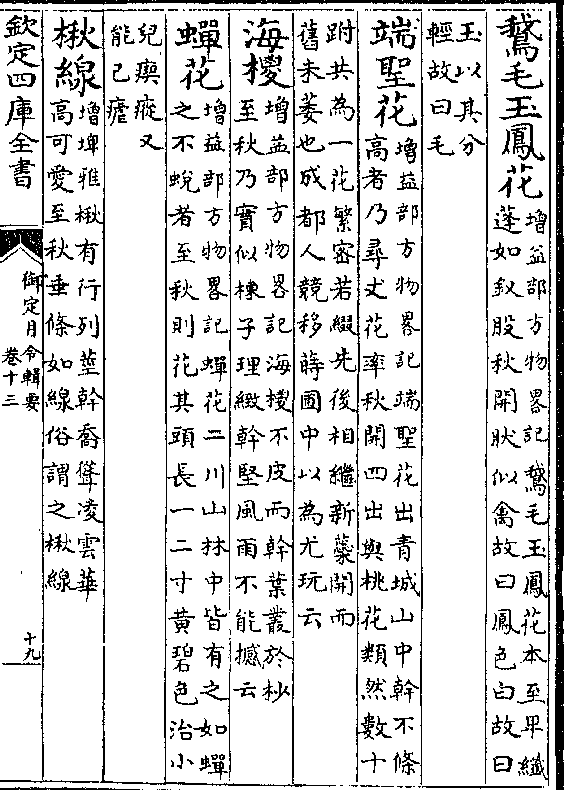 鵝毛玉鳳花增益部方物畧記鵝毛玉鳳花本至卑纖
蓬如釵股秋開狀似禽故曰鳳色白故曰
玉以其分
輕故曰毛
端聖花增益部方物畧記端聖花出青城山中幹不條
高者乃尋丈花率秋開四出與桃花類然數十
跗共為一花繁密若綴先後相繼新蘂開而
舊未萎也成都人競移蒔圃中以為尤玩云
海椶增益部方物畧記海椶不皮而幹葉叢於杪
至秋乃實似楝子理緻幹堅風雨不能撼云
蟬花增益部方物畧記蟬花二川山林中皆有之如蟬
之不蛻者至秋則花其頭長一二寸黄碧色治小
兒瘈瘲又
能已瘧
楸線增埤雅楸有行列莖幹喬聳凌雲華
高可愛至秋垂條如線俗謂之楸線
欽定四庫全書
御定月令輯要
卷十三
十九